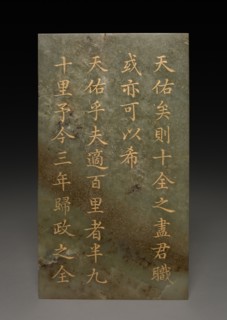 天佑矣則十全之盡君職
或亦可以希
天佑乎夫適百里者半九
十里予今三年歸政之全